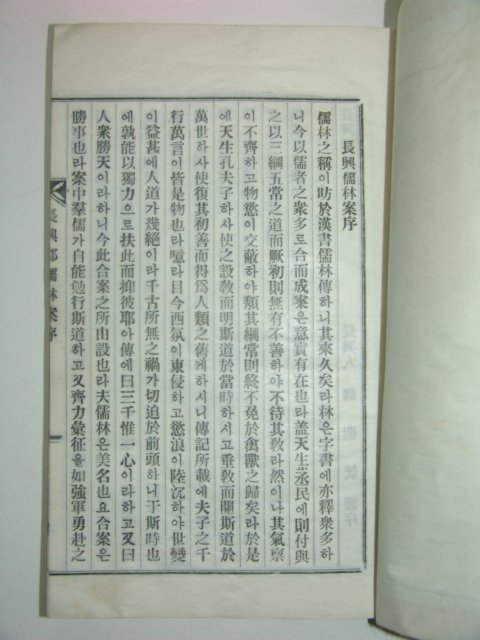 長興儒林案序
儒林之稱이昉於漢書儒林傳하니其來久矣라林은字書에亦釋衆多하
니今以儒者之衆多로合而成案은意實有在也라盖天生烝民에則付與
之以三綱五常之道而厥初則無有不善하야不待其敎라然이나其氣稟
이不齊하고物慾이交蔽하야頹其綱常則終不免於禽獸之歸矣라於是
에天生孔夫子하사使之設敎而明斯道於當時하시고垂敎而開斯道於
萬世하사使復其初善而得爲人類之舊케하시니傳記所載에夫子之千
行萬言이皆是物也라噫라目今西氛이東侵하고慾浪이陸沉하야世變
이益甚에人道가幾絕이라千古所無之禍가切迫於前頭하니于斯時也
에孰能以獨力으로扶此而抑彼耶아傳에曰三千惟一心이라하고又曰
人衆勝天이라하니今此合案之所由設也라夫儒林은美名也요合案은
勝事也라案中羣儒가自能勉行斯道하고又齊力彙征을如強軍勇赴之
長興郡儒林案序